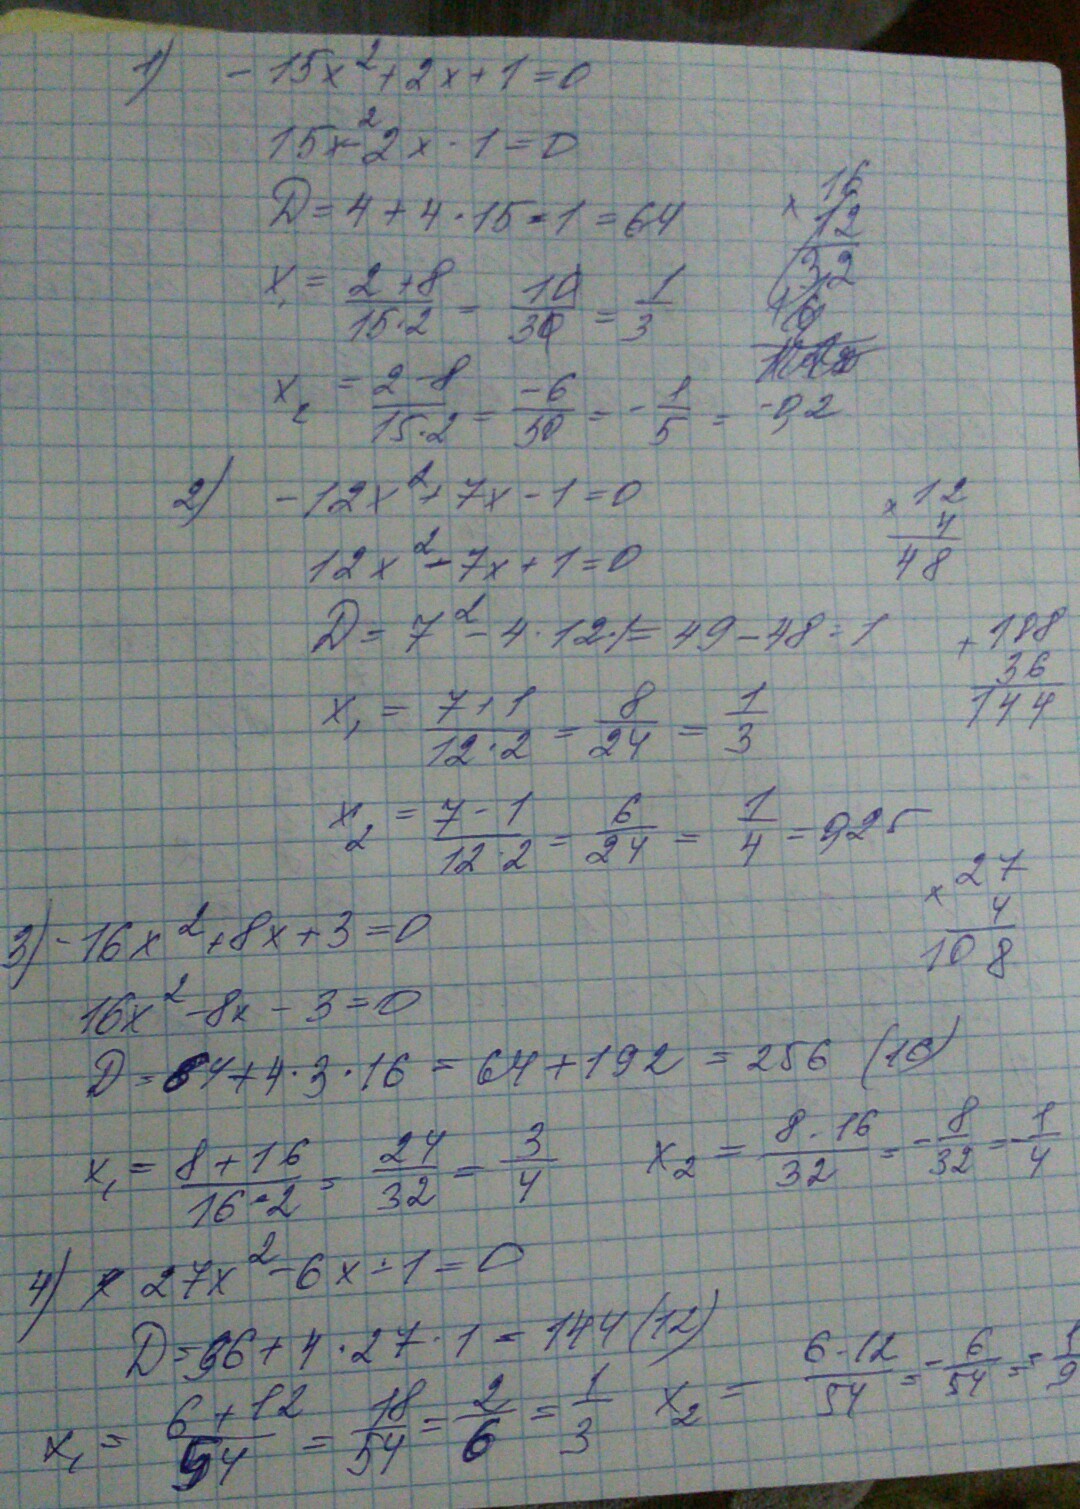 1) -15x²+2x+1=0
15x²-2x-1=0
D=4+4·15·1=64
x₁ = (2+8)/(15·2) = 10/30 = 1/3
x₂ = (2-8)/(15·2) = -6/30 = -1/5 = -0,2
× 16
12
32
16
2) -12x²+7x-1=0
12x²-7x+1=0
D=7²-4·12·1=49-48=1
x₁ = (7+1)/(12·2) = 8/24 = 1/3
x₂ = (7-1)/(12·2) = 6/24 = 1/4 = 0,25
× 12
4
48
+ 108
36
144
× 27
4
108
3) -16x²+8x+3=0
16x²-8x-3=0
D=64+4·3·16=64+192=256 (16)
x₁ = (8+16)/(16·2) = 24/32 = 3/4 x₂ = (8-16)/32 = -8/32 = -1/4
4) 27x²-6x-1=0
D=36+4·27·1=144(12)
x₁ = (6+12)/54 = 18/54 = 2/6 = 1/3 x₂ = (6-12)/54 = -6/54 = -1/9